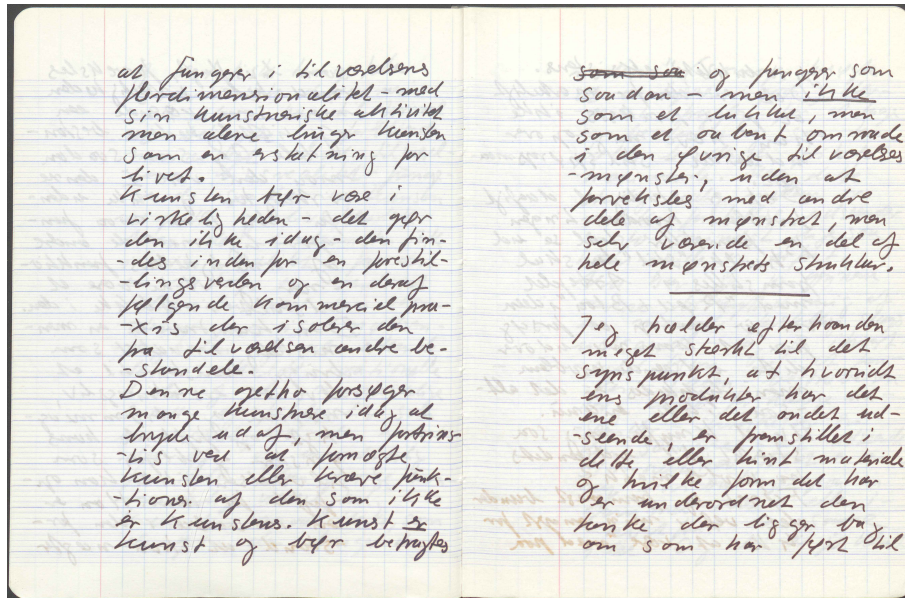 at fungerer i tilværelsens
flerdimensionalitet - med
sin kunstneriske aktivitet
men alene bruger kunsten
som en erstatning for
livet.
Kunsten bør være i
virkeligheden - det gør
den ikke idag - den fin-
-des inden for en forestil-
-lingsverden og en deraf
følgende kommerciel pra-
-xis der isolerer den
fra tilværelsen andre be-
-standele.
Denne getho forsøger
mange kunstnere idag at
bryde ud af, men fortrins-
-vis ved at fornægte
kunsten eller kræve funk-
-tioner af den som ikke
er kunstens. Kunst er
kunst og bør betragtes
som son og fungerer som
soudan - men ikke
som et lukket, men
som et oabent omraade
i den øvrige tilværelses
-mønster, uden at
forveksles med andre
dele af mønstret, men
selv værende en del af
hele mønstrets struktur.
Jeg hælder efterhaanden
meget stærkt til det
synspunkt, at hvorvidt
ens produkter har det
ene eller det andet ud-
-seende, er fremstillet i
dette eller hint materiale
og hvilke form det har
er underordnet den
tanke der ligger bag
om som har ført til